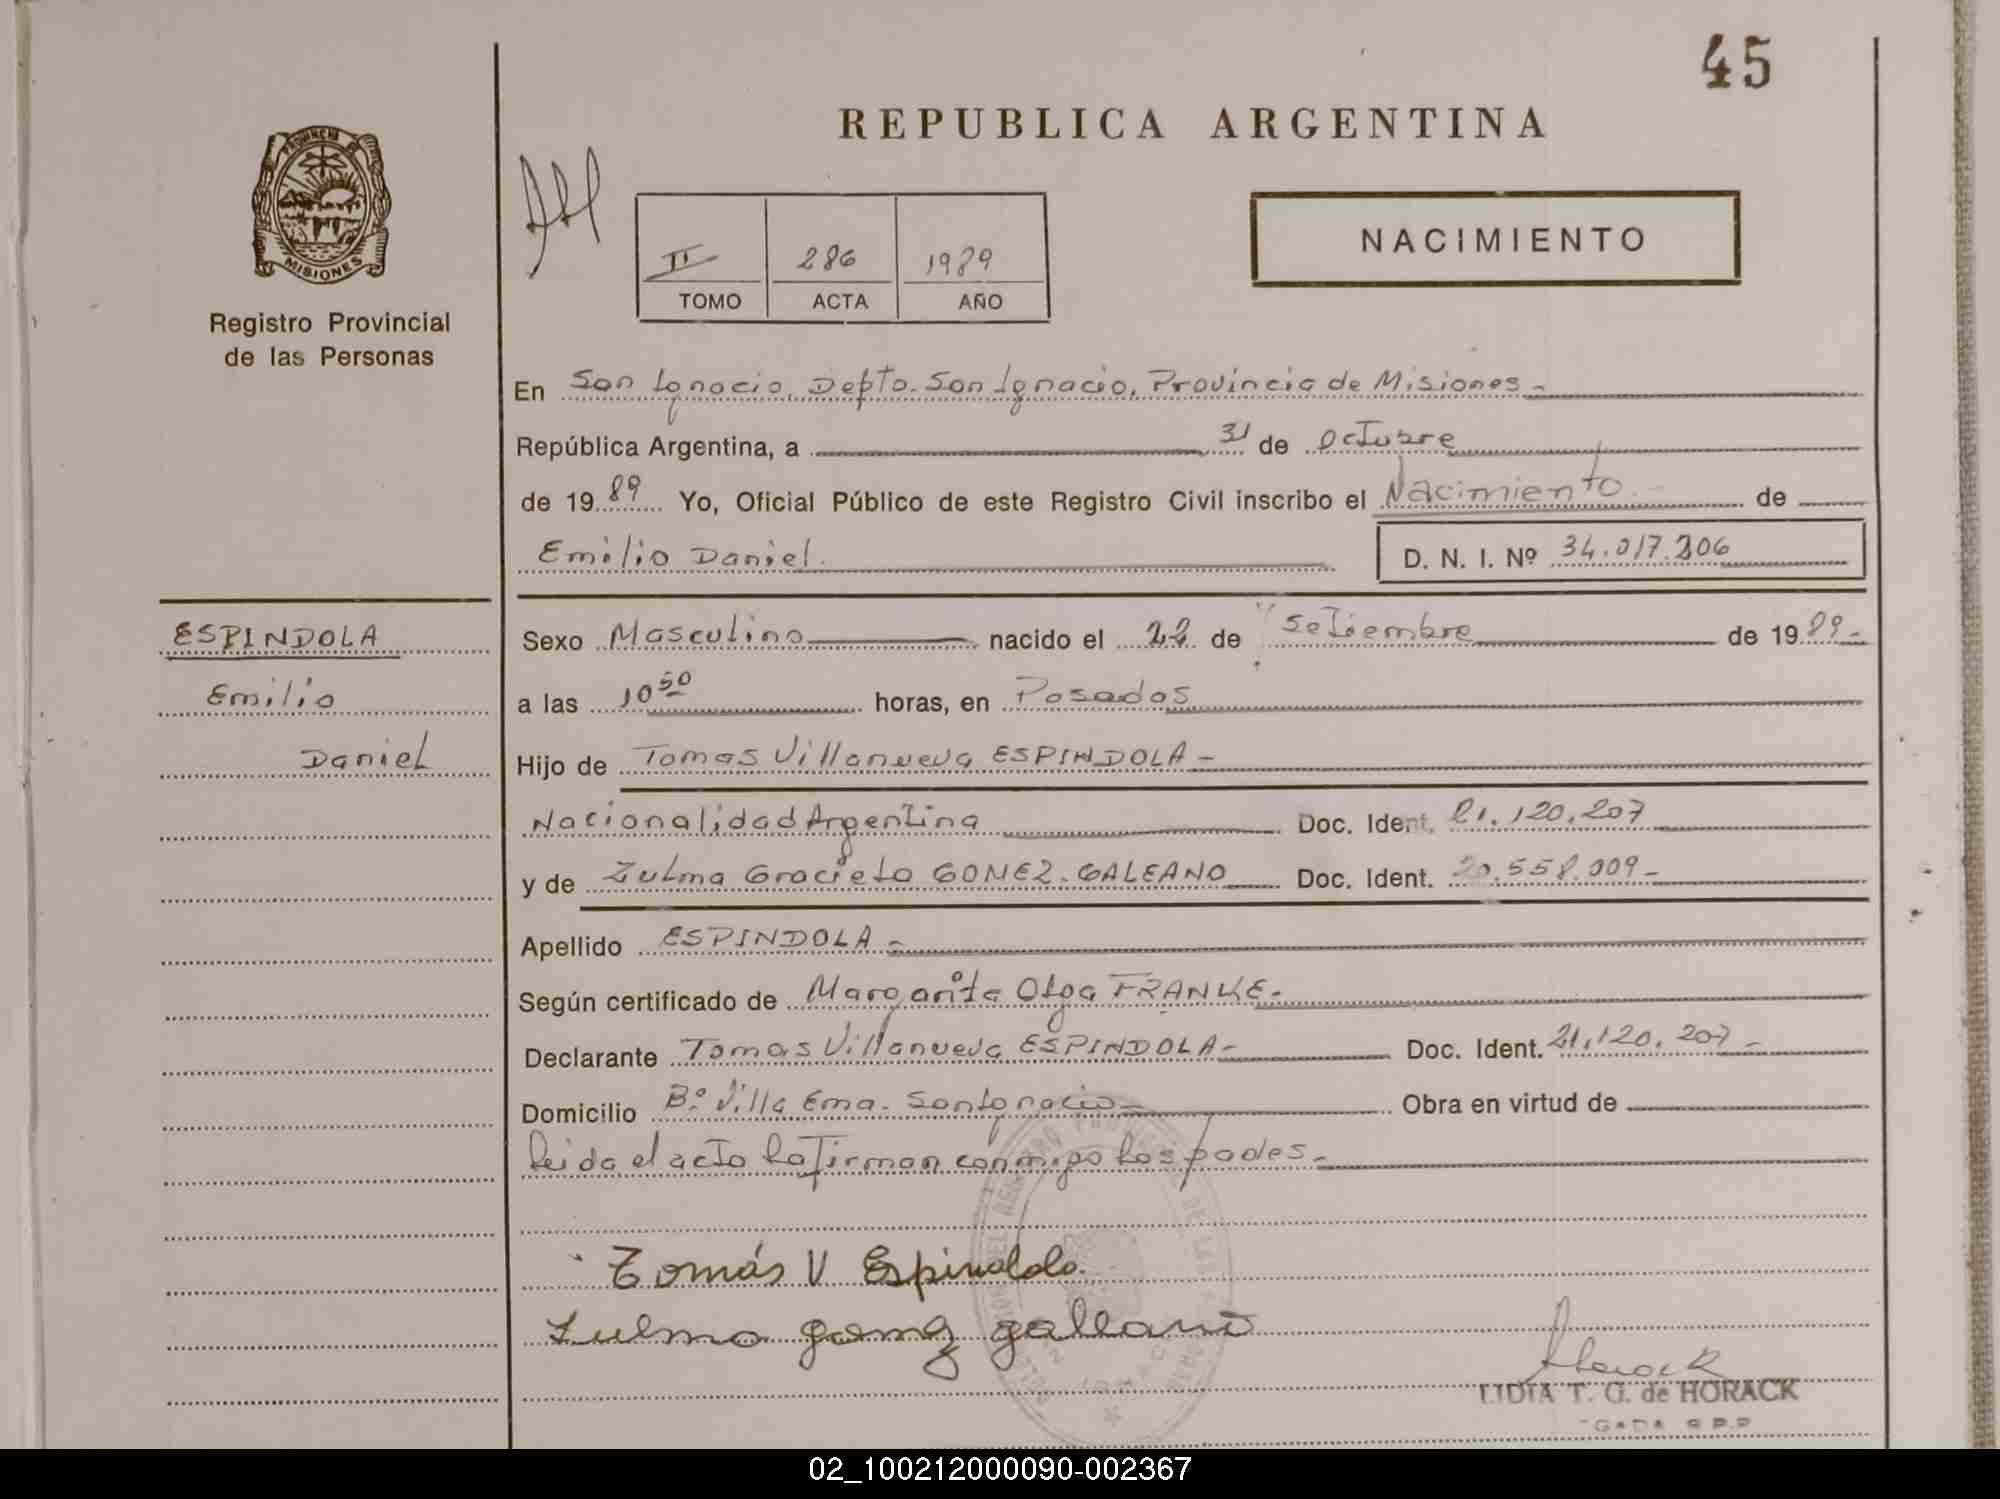 45
REPUBLICA ARGENTINA
PROVINCIA DE
MISIONES
Registro Provincial
de las Personas
II 286 1989
TOMO ACTA AÑO
NACIMIENTO
En San Ignacio, Depto. San Ignacio, Provincia de Misiones-
República Argentina, a 31 de octubre
de 1989 Yo, Oficial Público de este Registro Civil inscribo el Nacimiento de
Emilio Daniel. D. N. I. Nº 34.017.206
ESPINDOLA
Emilio
Daniel
Sexo Masculino nacido el 22 de Setiembre de 1989-
a las 10 50 horas, en Posadas
Hijo de Tomas Villanueva ESPINDOLA-
Nacionalidad Argentina Doc. Ident. 21.120.207
y de Zulma Graciela GOMEZ-GALEANO Doc. Ident. 20.558.009-
Apellido ESPINDOLA-
Según certificado de Margarita Olga FRANKE-
Declarante Tomas Villanueva ESPINDOLA- Doc. Ident. 21.120.207-
Domicilio Bº Villa Ema. San Ignacio- Obra en virtud de
Leida el acta la firman conmigo los pades-
Tomás V Espindola.
Zulma gomez galeano
Horack
LIDIA T. G. de HORACK
02_100212000090-002367